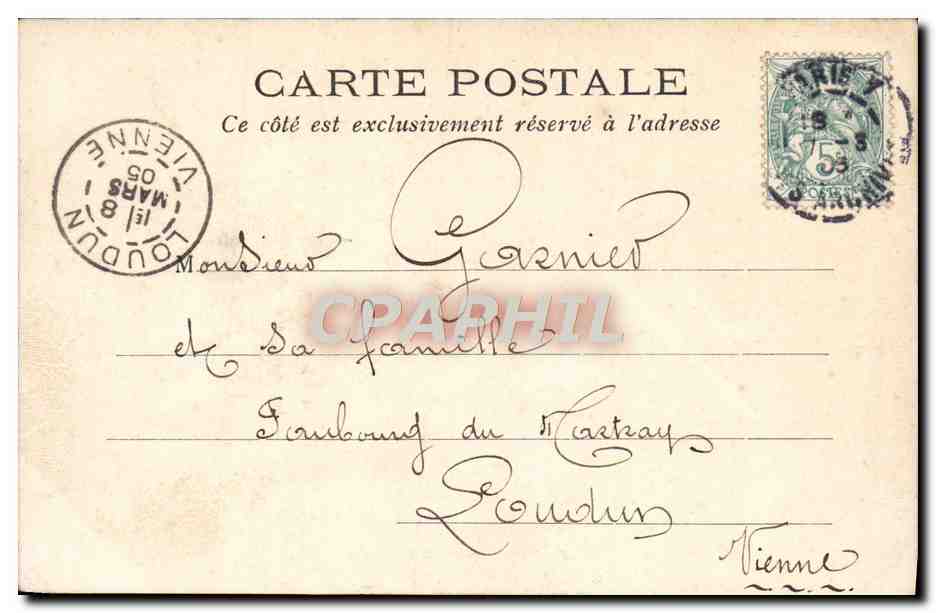 CARTE POSTALE
Ce côté est exclusivement réservé à l'adresse
LOUDUN
VIENNE
1E/
8
MARS
05
5c
POSTES
Monsieur Garnier
et sa famille
Faubourg du Martray
Loudun
Vienne
CPAPHIL